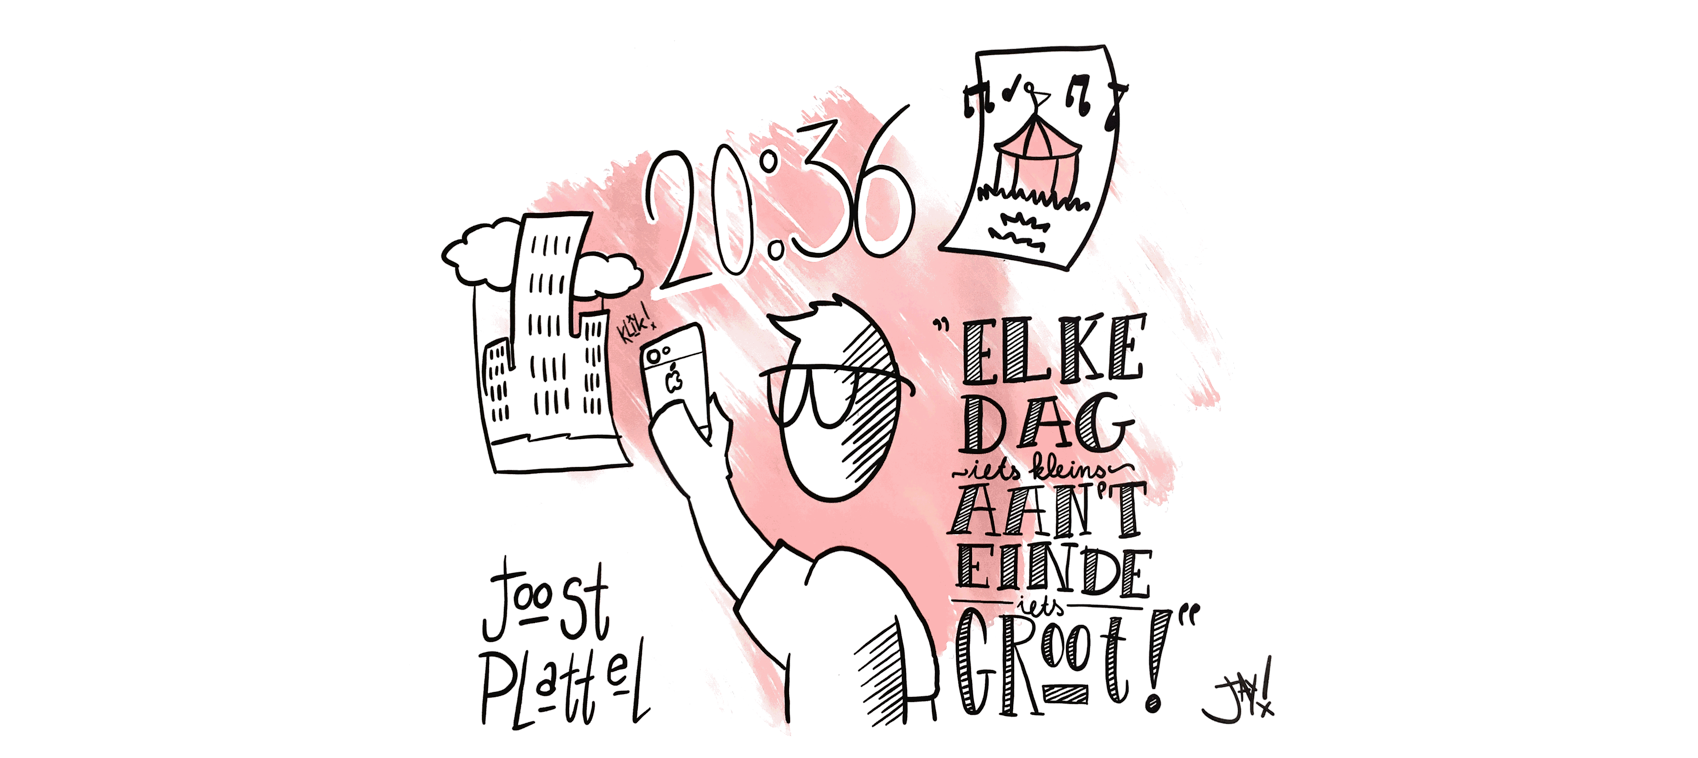 20:36
KLIK!
"ELKE
DAG
iets kleins
AAN'T
EINDE
iets
GROOT!"
Joost
Plattel
JAY!